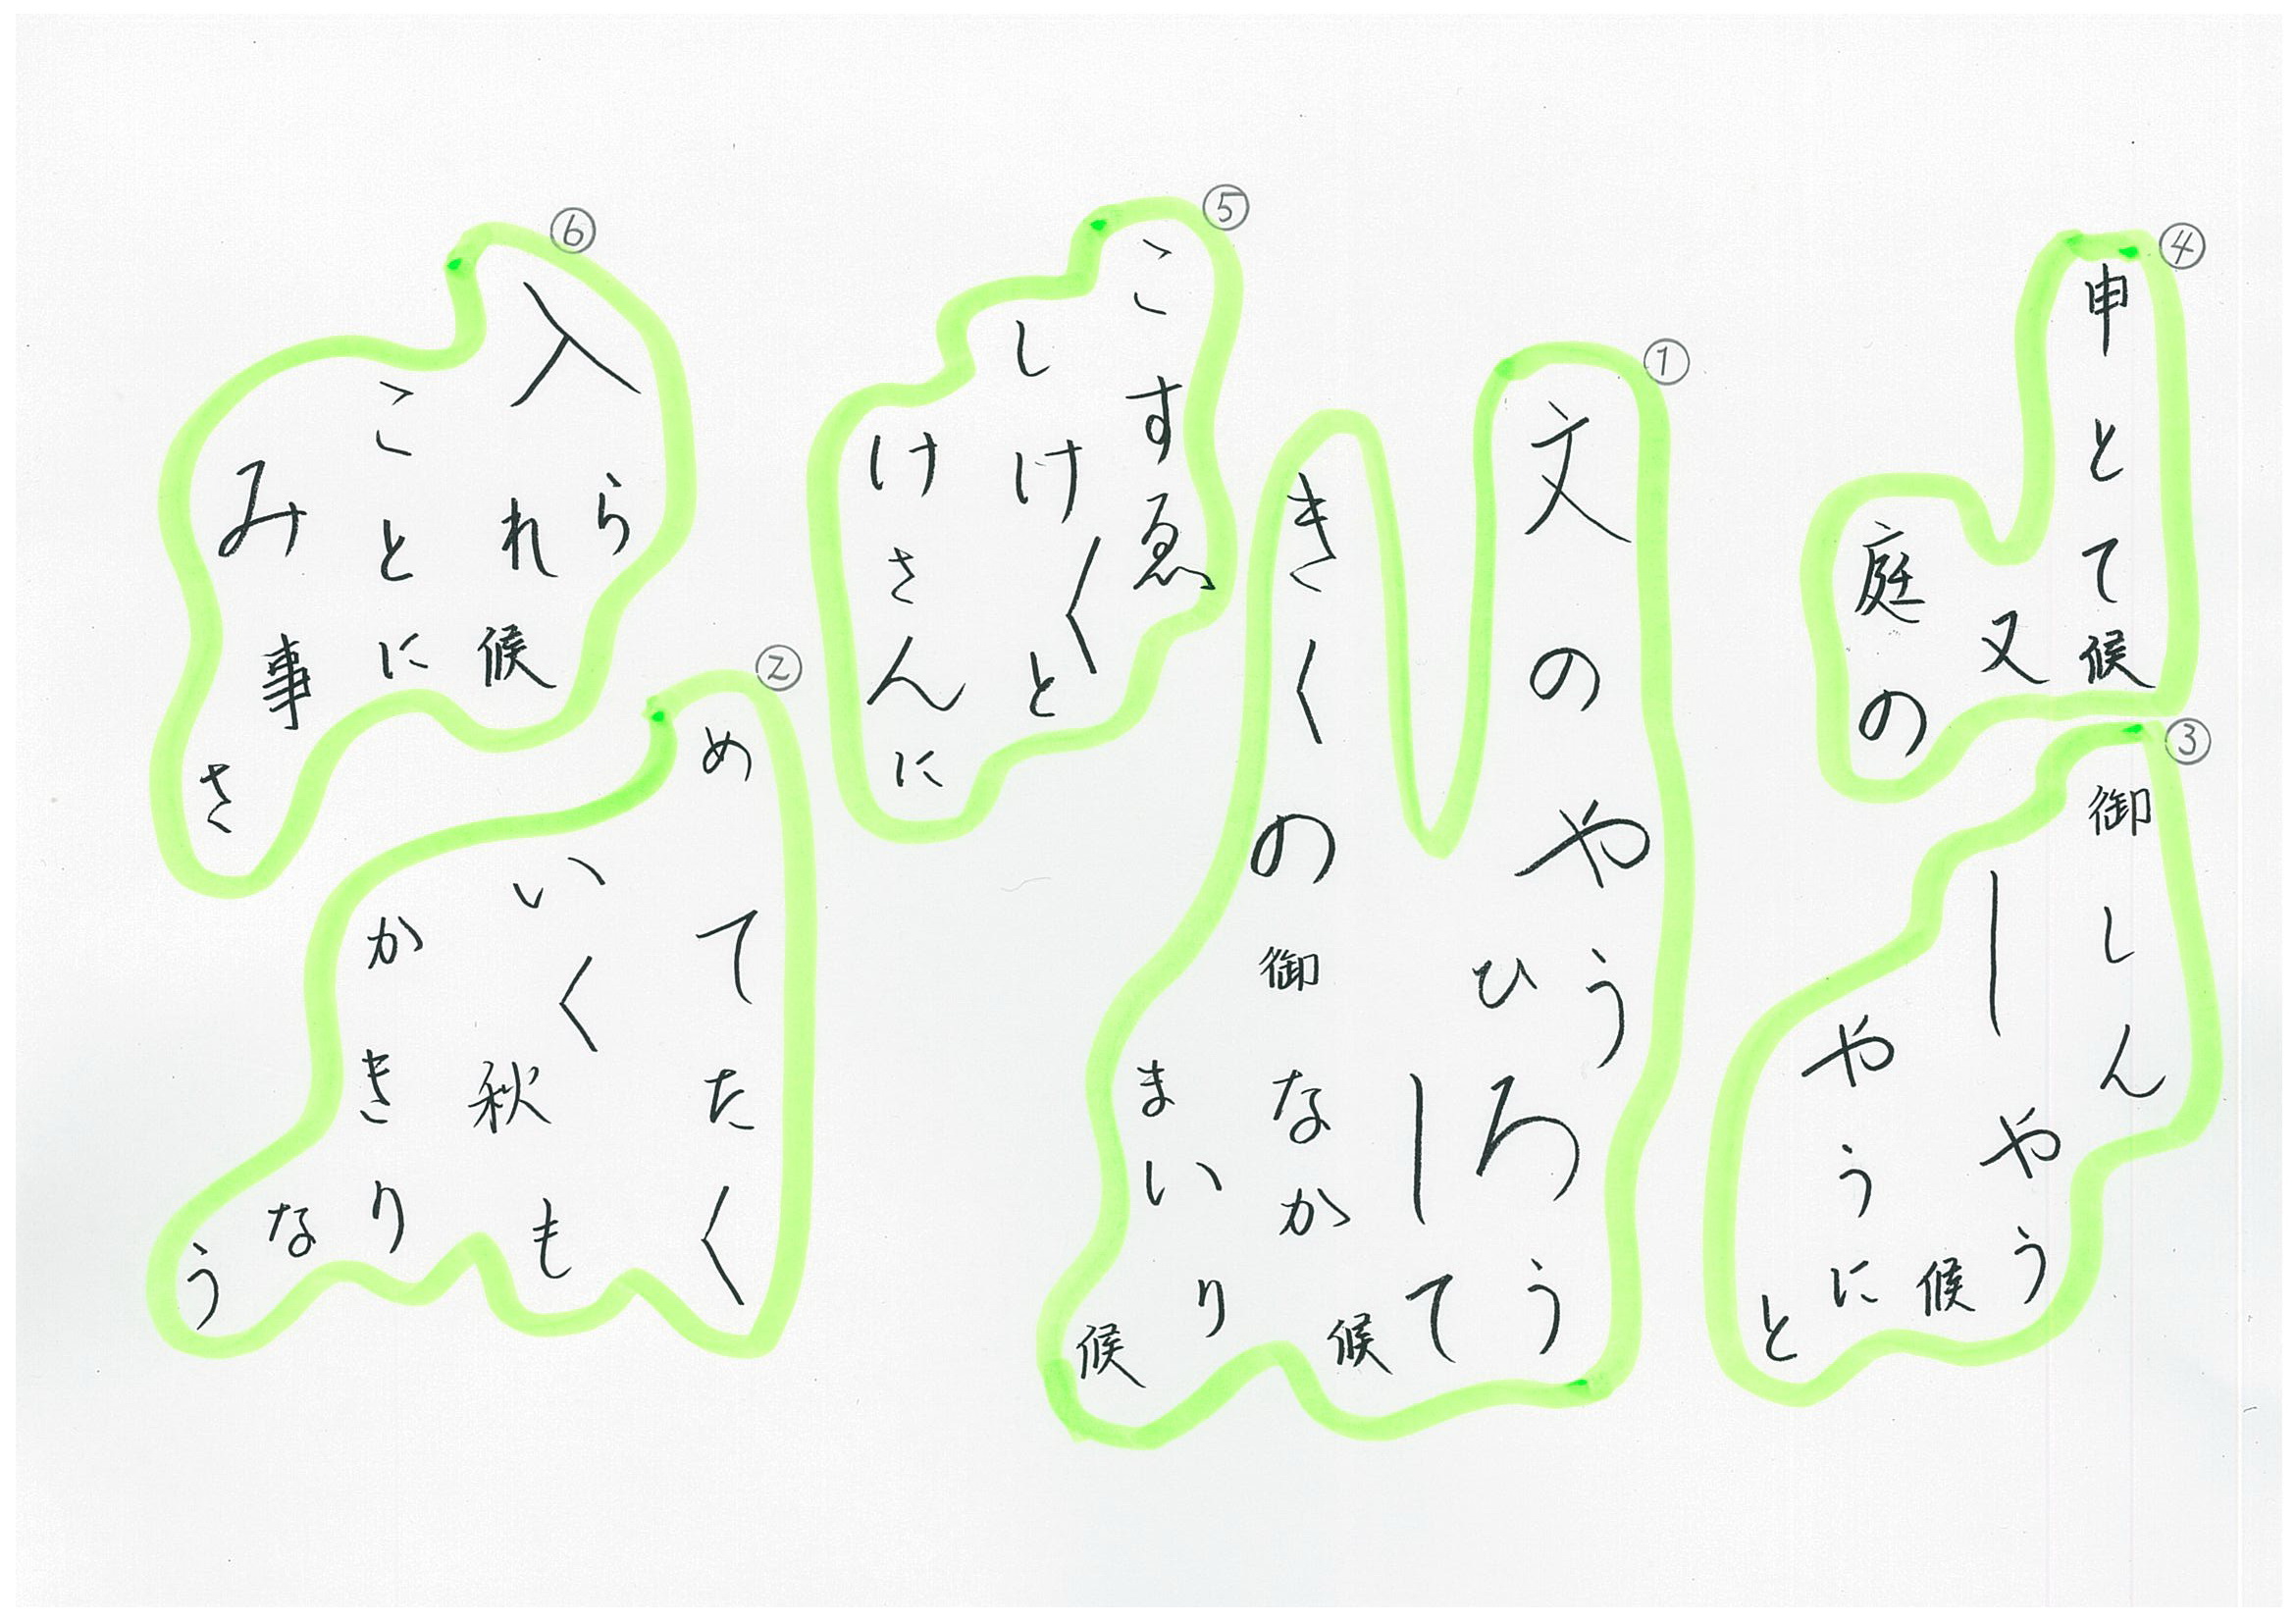 ①
文のやう
ひろう
して候
きくの御なか
まいり候
②
めてたく
いく秋も
かきり
なう
③
御しん
しやう候
やうに
と
④
申とて候
又
庭の
⑤
こすゑ
しけ〱と
けさんに
⑥
入られ候
ことに
み事
さ